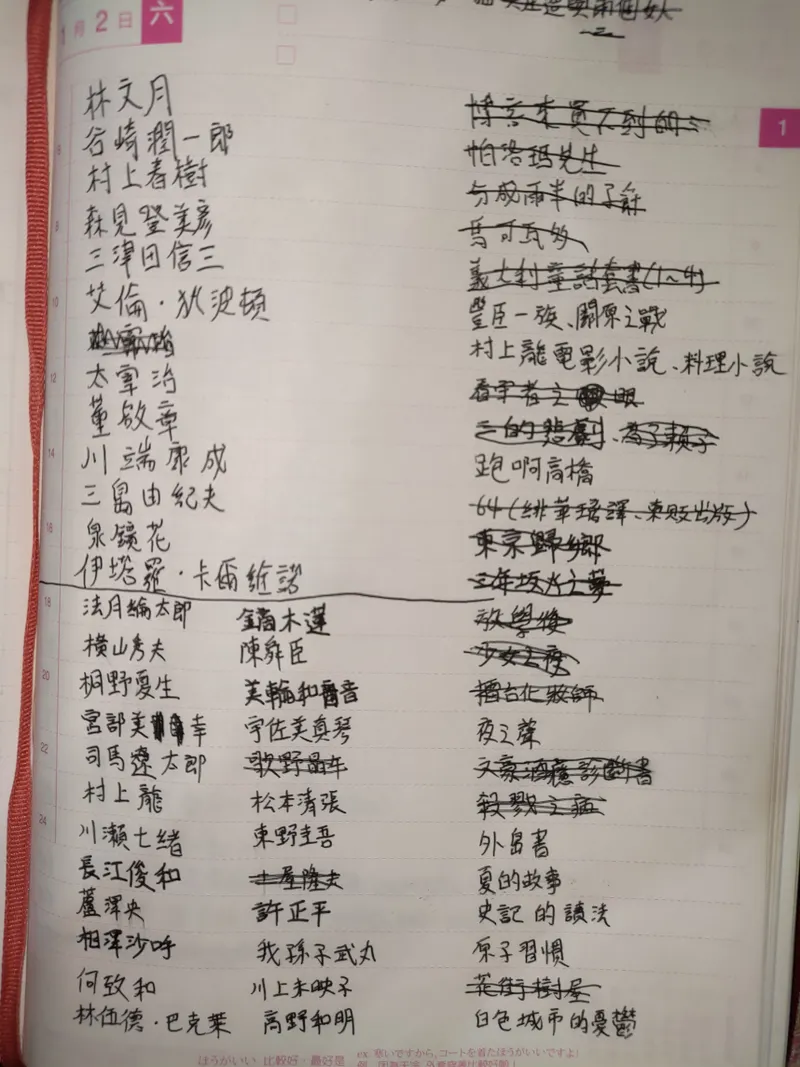 1月2日 六
林文月
谷崎潤一郎
村上春樹
森見登美彥
三津田信三
艾倫·狄波頓
太宰治
董啟章
川端康成
三島由紀夫
泉鏡花
伊塔羅·卡爾維諾
法月綸太郎
橫山秀夫
桐野夏生
宮部美幸
司馬遼太郎
村上龍
川瀨七緒
長江俊和
蘆澤央
相澤沙呼
何致和
林伍德·巴克萊
鏑木蓮
陳舜臣
美輪和音
宇佐美真琴
歌野晶午
松本清張
東野圭吾
土屋隆夫
許正平
我孫子武丸
川上未映子
高野和明
博客來買不到的:
帕洛瑪先生
分成兩半的子爵
馬可瓦多
義大利童話套書(1~4)
豐臣一族、關原之戰
村上龍電影小說、料理小說
看守者之眼
的悲劇、為了賴子
跑啊高橋
64(緋華璃譯、東販出版)
東京歸鄉
三年坂火之夢
放學後
少女之夜
化妝師
夜之聲
文豪酒癮診斷書
殺戮之病
外島書
夏的故事
史記的讀法
原子習慣
花街樹屋
白色城市的憂鬱
1
8
10
12
14
16
18
20
22
24
ほうがいい 比較好,最好是
ex. 寒いですから、コートを着たほうがいいですよ!